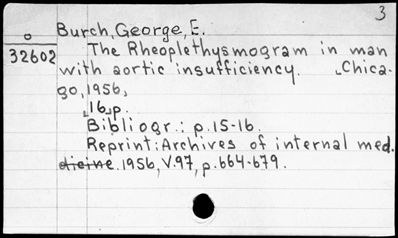 3
Burch, George, E.
o
32602
The Rheoplethysmogram in man
with aortic insufficiency. Chica-
go, 1956,
16 p.
Bibliogr.: p. 15-16.
Reprint: Archives of internal med.
dicine. 1956, V. 97, p. 664-679.